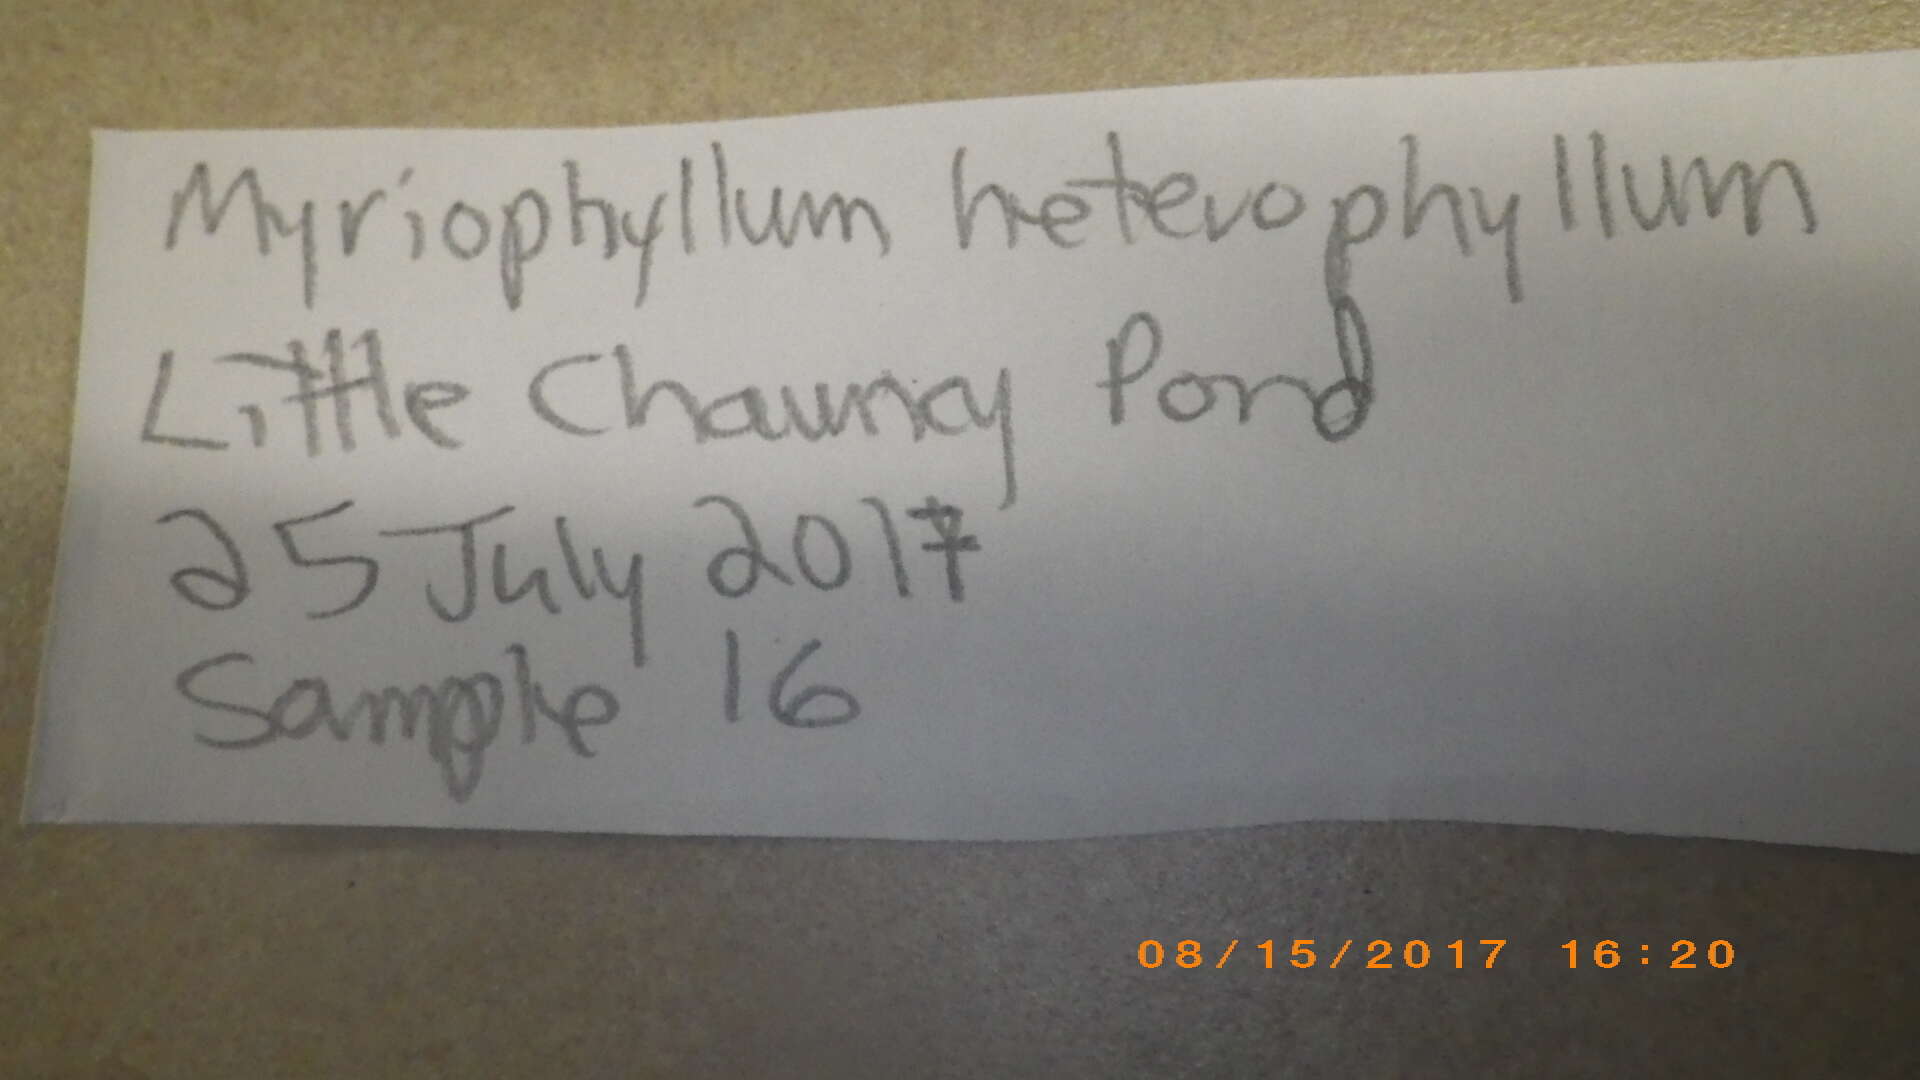 Myriophyllum heterophyllum
Little Chauncy Pond
25 July 2017
Sample 16
08/15/2017 16:20